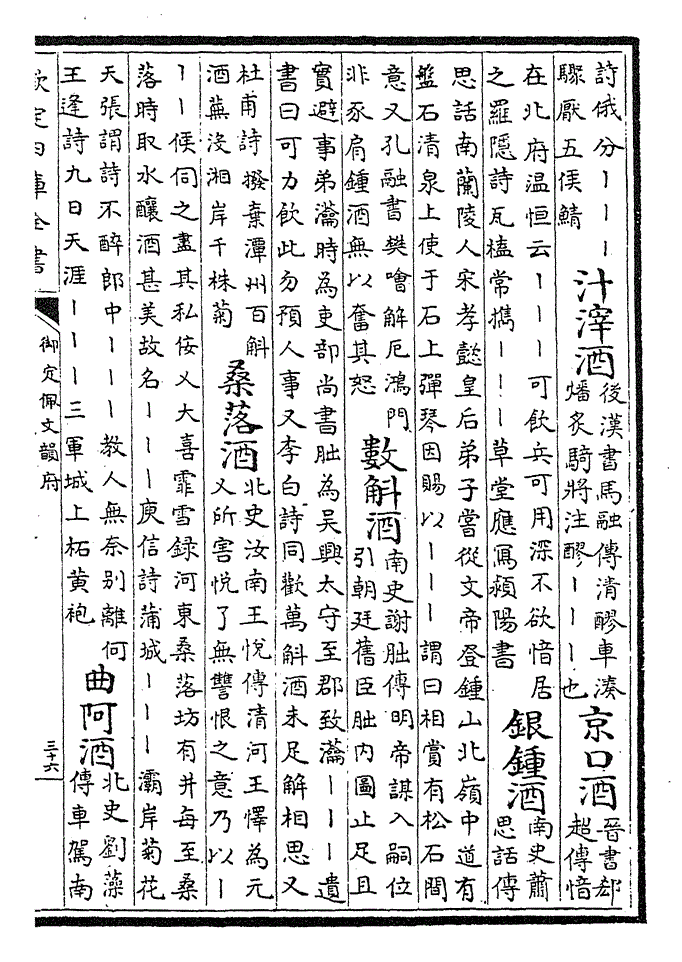 詩俄分｜｜｜
驟厭五侯鯖
汁滓酒
後漢書馬融傳清醪車湊
燔炙騎將注醪｜｜｜也
京口酒
晉書郄
超傳愔
在北府温恒云｜｜｜可飲兵可用深不欲愔居
之羅隱詩瓦榼常攜｜｜｜草堂應寫潁陽書
銀鍾酒
南史蕭
思話傳
思話南蘭陵人宋孝懿皇后弟子嘗從文帝登鍾山北嶺中道有
盤石清泉上使于石上彈琴因賜以｜｜｜謂曰相賞有松石間
意又孔融書樊噲解厄鴻門
非豕肩鍾酒無以奮其怒
數斛酒
南史謝朏傳明帝謀入嗣位
引朝廷舊臣朏内圖止足且
實避事弟瀹時為吏部尚書朏為吳興太守至郡致瀹｜｜｜遺
書曰可力飲此勿預人事又李白詩同歡萬斛酒未足解相思又
杜甫詩撥棄潭州百斛
酒蕪没湘岸千株菊
桑落酒
北史汝南王悦傳清河王懌為元
乂所害悦了無讐恨之意乃以｜
｜｜候伺之盡其私佞乂大喜霏雪録河東桑落坊有井每至桑
落時取水釀酒甚美故名｜｜｜庾信詩蒲城｜｜｜灞岸菊花
天張謂詩不醉郎中｜｜｜教人無奈别離何
王逢詩九日天涯｜｜｜三軍城上柘黄袍
曲阿酒
北史劉藻
傳車駕南
欽定四庫全書
御定佩文韻府
三十六